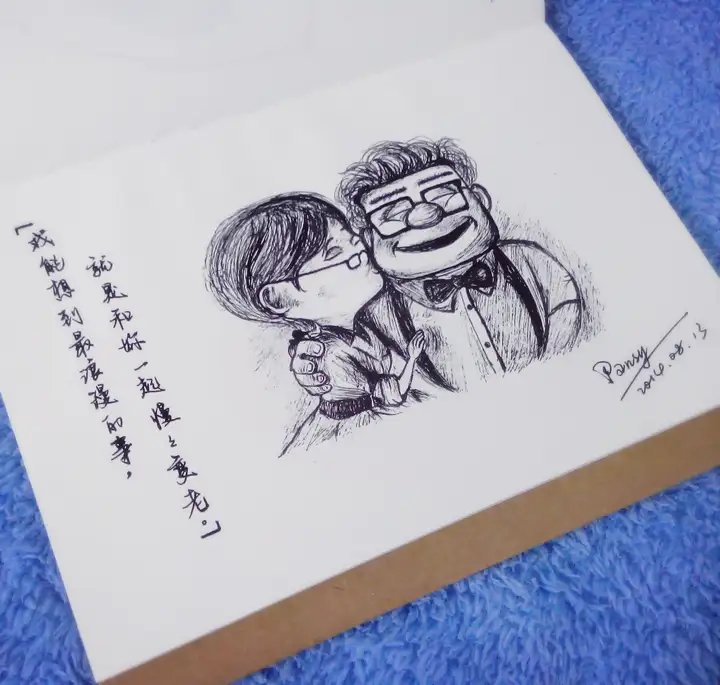 「我能想到最浪漫的事，
就是和妳一起慢々变老。」
Pansy
2016.08.13